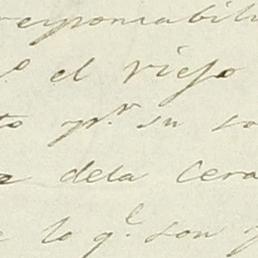 responsabili
el viejo
to pr. su
dela Cera
lo q.e son